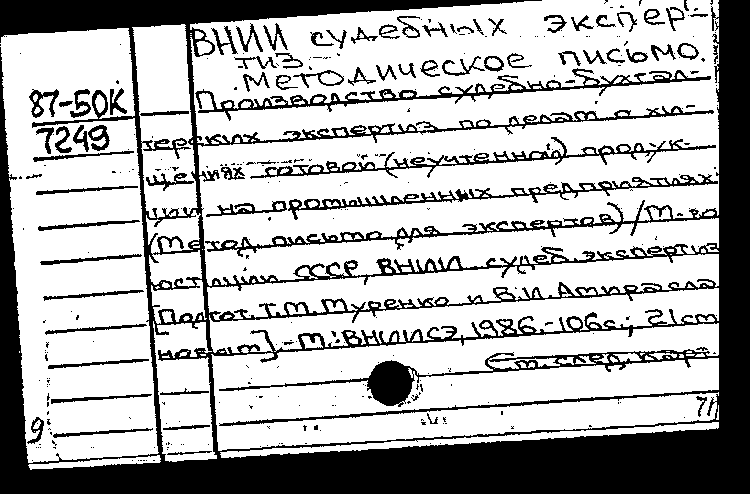 ВНИИ судебных экспер-
тиз.
Методическое письмо.
87-50К
7249
Производство судебно-бухгал-
терских экспертиз по делам о хи-
щениях готовой (неучтенной) продук-
ции на промышленных предприятиях
(Метод. письмо для экспертов) / М-во
юстиции СССР, ВНИИ судеб. экспертиз
[Подгот. Т.М. Муренко и В.И. Амирасла
новым]. - М.: ВНИИСЭ, 1986. - 106 с.; 21 cm
См. след. карт.
9
71